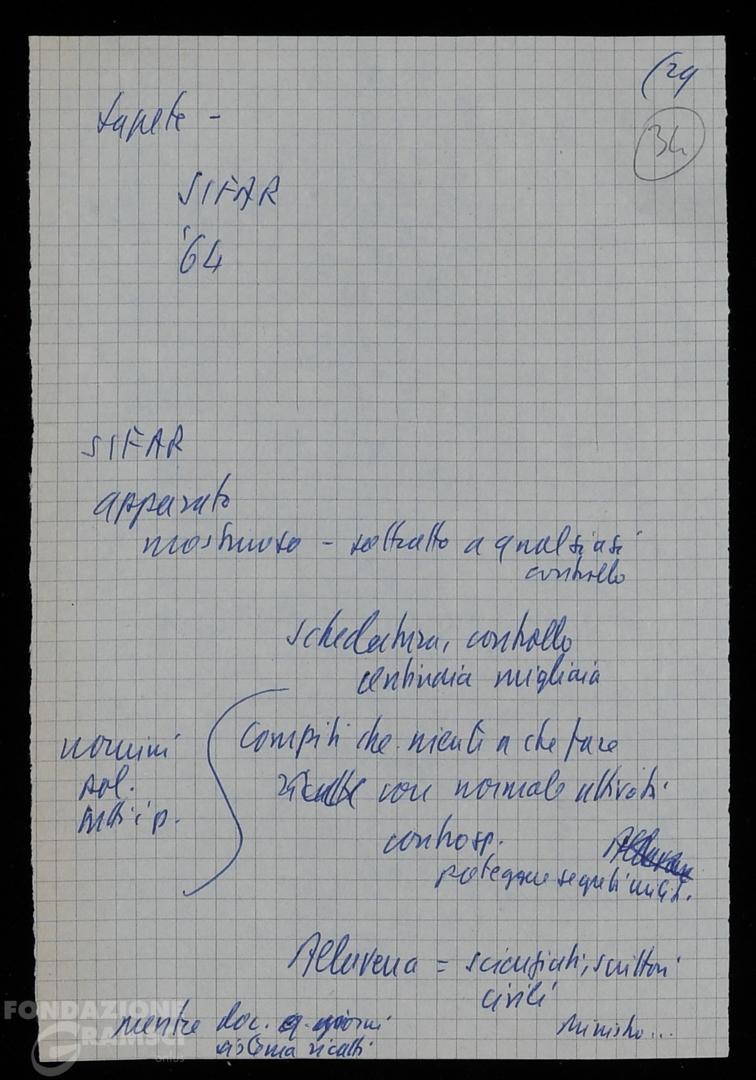 (29
34
sapete -
SIFAR
'64
SIFAR
apparato
mostruoso - sottratto a qualsiasi
controllo
schedatura, controllo
centinaia migliaia
uomini
pol.
tutti i p.
compiti che nienti a che fare
con normale attività
controsp.
proteggere segreti milit.
Allavena = scienziati, scrittori
civili
mentre doc. giorni
sistema ricatti
Ministro...
FONDAZIONE
GRAMSCI
onlus